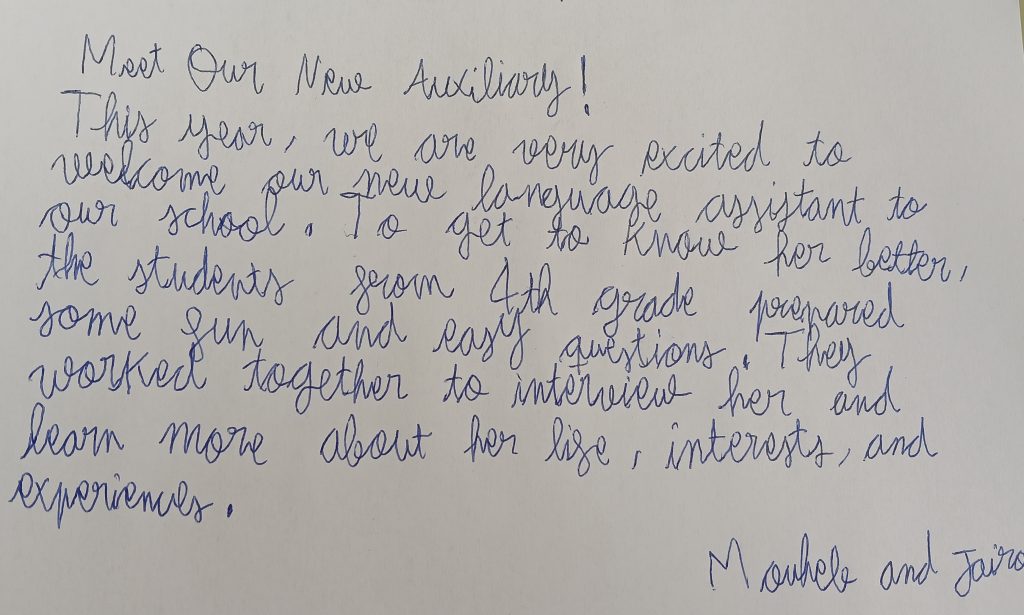 Meet Our New Auxiliary!
This year, we are very excited to
welcome our new language assistant to
our school. To get to know her better,
the students from 4th grade prepared
some fun and easy questions. They
worked together to interview her and
learn more about her life, interests, and
experiences.
and Jairo